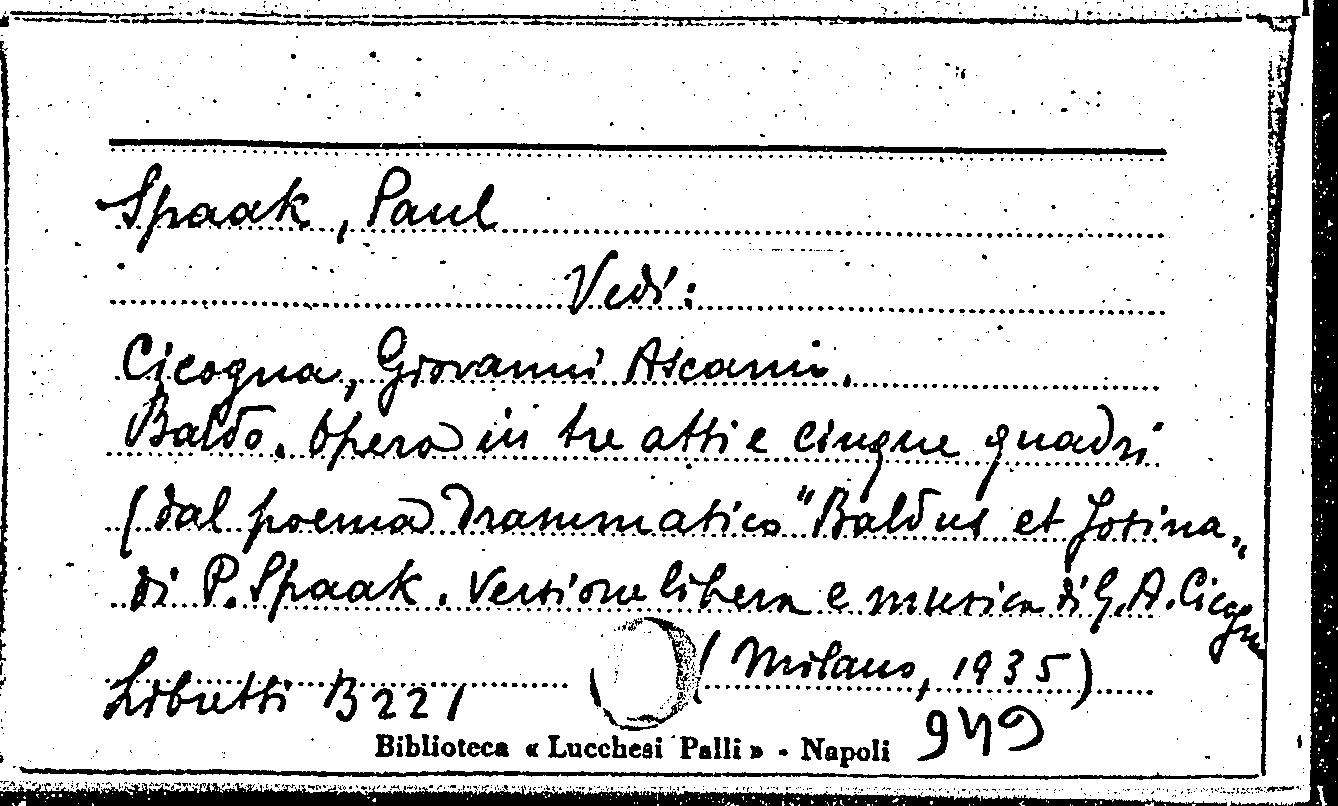 Spaak, Paul
Vedi:
Cicogna, Giovanni Ascanio.
Baldo. Opera in tre atti e cinque quadri
(dal poema drammatico "Baldus et Josina„
di P. Spaak. Versione libera e musica di G. A. Cicogna
(Milano, 1935)
Libretti B 221
949
Biblioteca « Lucchesi Palli » - Napoli